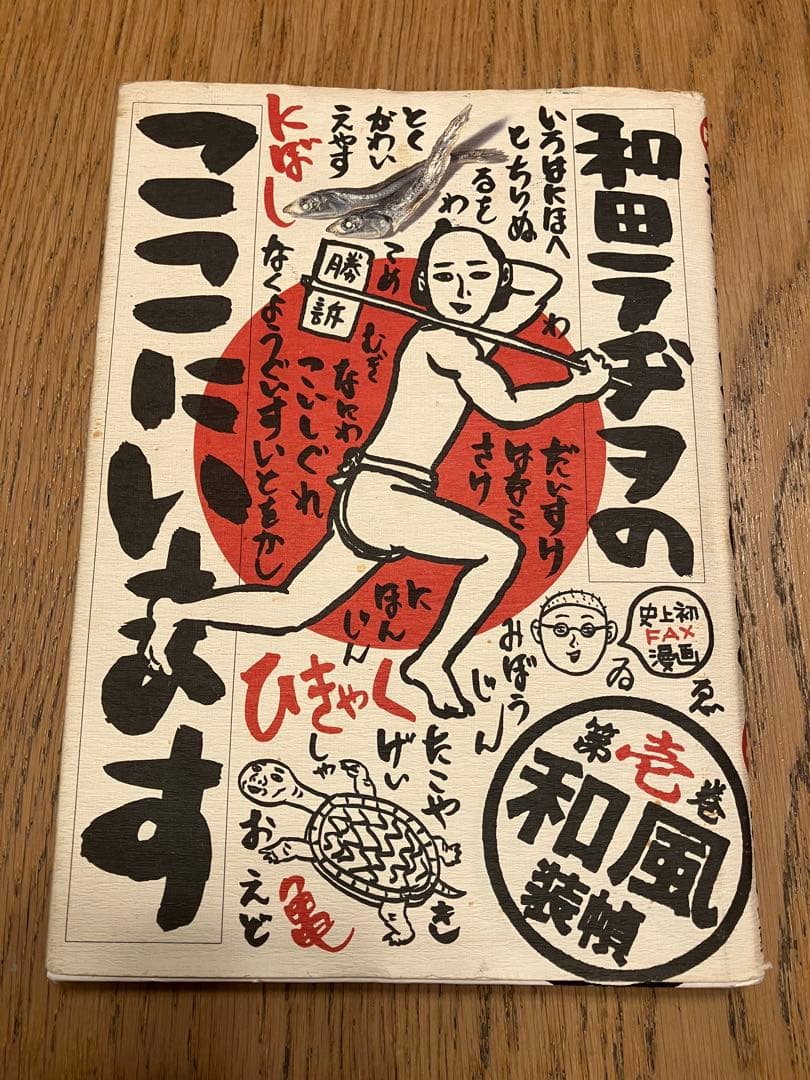 和田ラヂヲの
ここにいます
いろはにほへ
とちりぬ
るを
わ
わ
とく
かわい
えやす
にばし
勝訴
こめ
むぎ
なにわ
こいしぐれ
なくようぐいすいとをかし
だいすけ
はなこ
さけ
に
ほん
じん
みぼう
じん
ひきゃく
史上初
FAX
漫画
ゐ
ゑ
たこや
き
げい
しゃ
お
えど
亀
第壱巻
和風
装幀